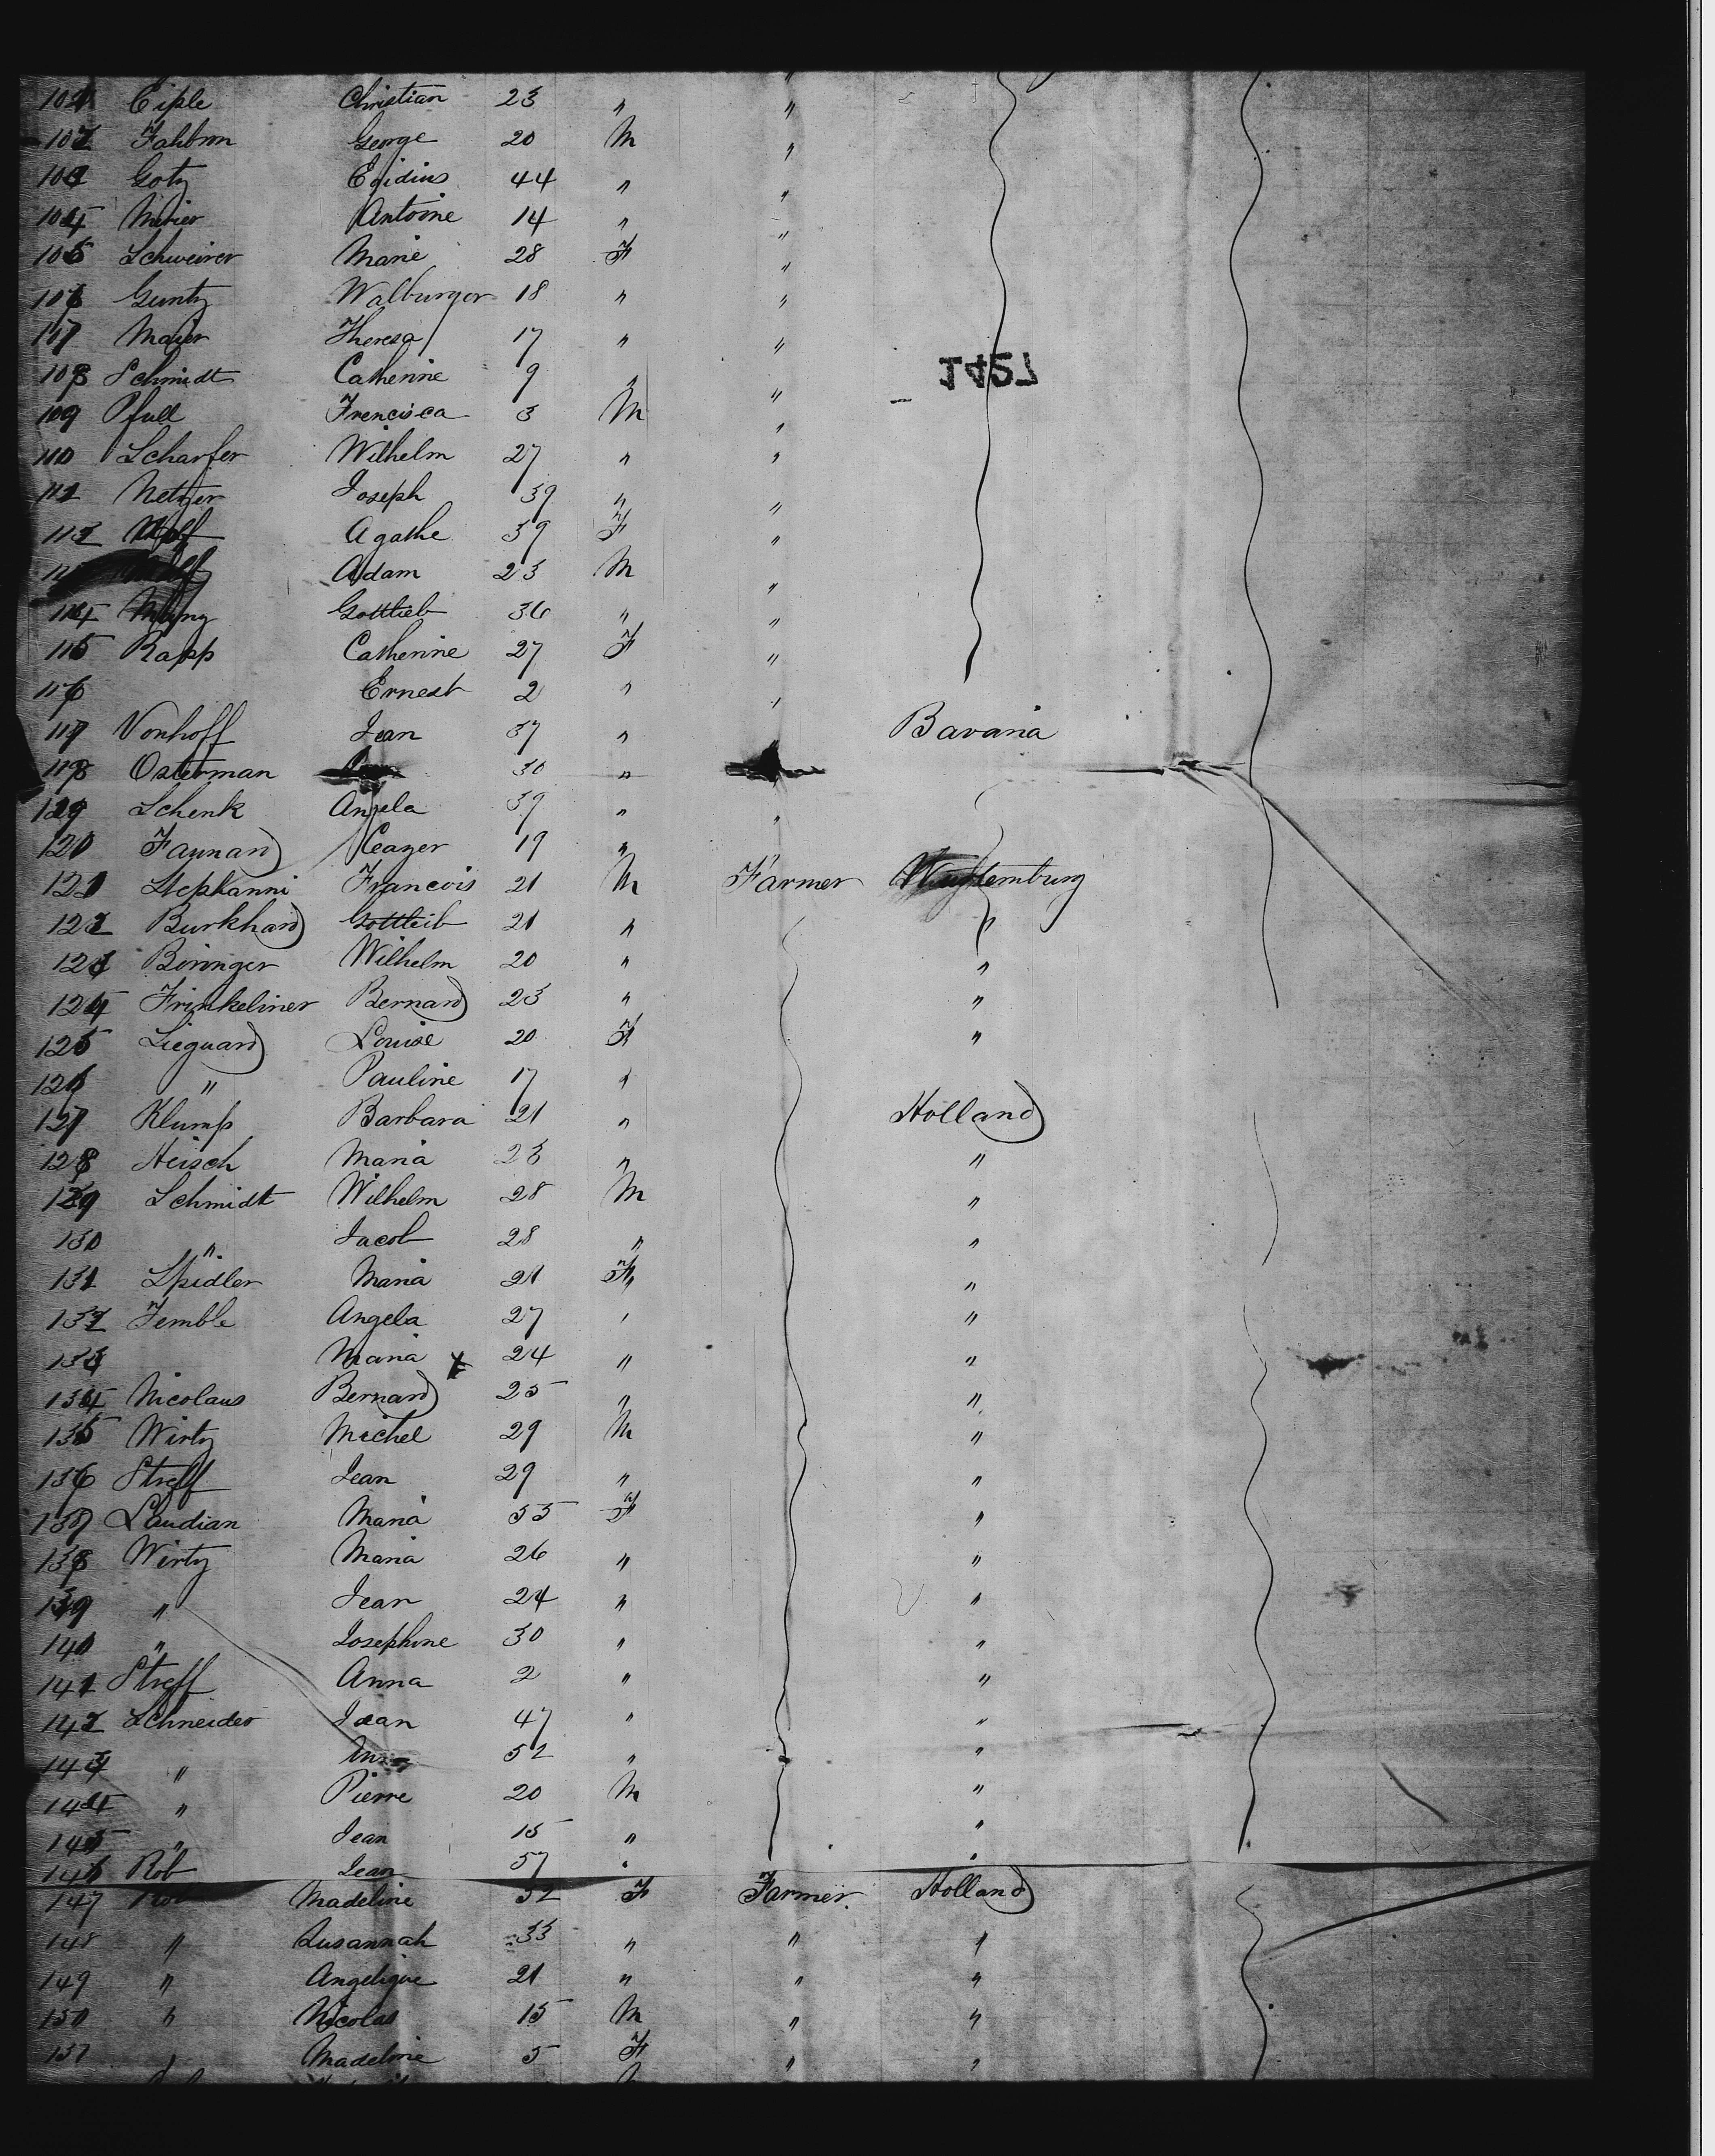 101 Eiple Christian 23 " "
102 Fahbrn George 20 M "
103 Goty Egidius 44 " "
104 Meier Antoine 14 " "
105 Schweirer Marie 28 F "
106 Gunty Walburger 18 " "
107 Maier Theresa 17 " "
108 Schmidt Catherine 9 " "
109 Pfull Frencisca 3 M "
110 Scharfer Wilhelm 27 " "
1427
111 Netzer Joseph 39 " "
112 Agathe 39 F "
Adam 23 M "
114 Gottlieb 36 " "
115 Rapp Catherine 27 F "
116 Ernest 2 " "
117 Vonhoff Jean 37 " Bavaria
118 Osterman 30 "
119 Schenk Angela 39 " "
120 Faunard Ceazer 19 " "
121 Stephanni Francois 21 M Farmer Wurtemburg
122 Burkhard Gottleib 21 " "
123 Boringer Wilhelm 20 " "
124 Frinkeliner Bernard 23 " "
125 Lieguard Louise 20 F "
126 " Pauline 17 "
127 Klump Barbara 21 " Holland
128 Heisch Maria 23 " "
129 Schmidt Wilhelm 28 M "
130 " Jacob 28 " "
131 Spidler Maria 21 F "
132 Femble Angela 27 " "
133 Maria x 24 " "
134 Nicolaus Bernard 25 " "
135 Wirty Michel 29 M "
136 Streff Jean 29 " "
137 Laudian Maria 55 F "
138 Wirty Maria 26 " "
139 " Jean 24 " "
140 " Josephine 30 " "
141 Streff Anna 2 " "
142 Schneider Jean 47 " "
143 " 52 " "
144 " Pierre 20 M "
145 " Jean 15 " "
146 Rob Jean 57 " "
147 Rob Madeline 52 F Farmer Holland
148 " Susannah 33 " " "
149 " Angelique 21 " " "
150 " Nicolas 15 M " "
151 " Madeline 5 F " "